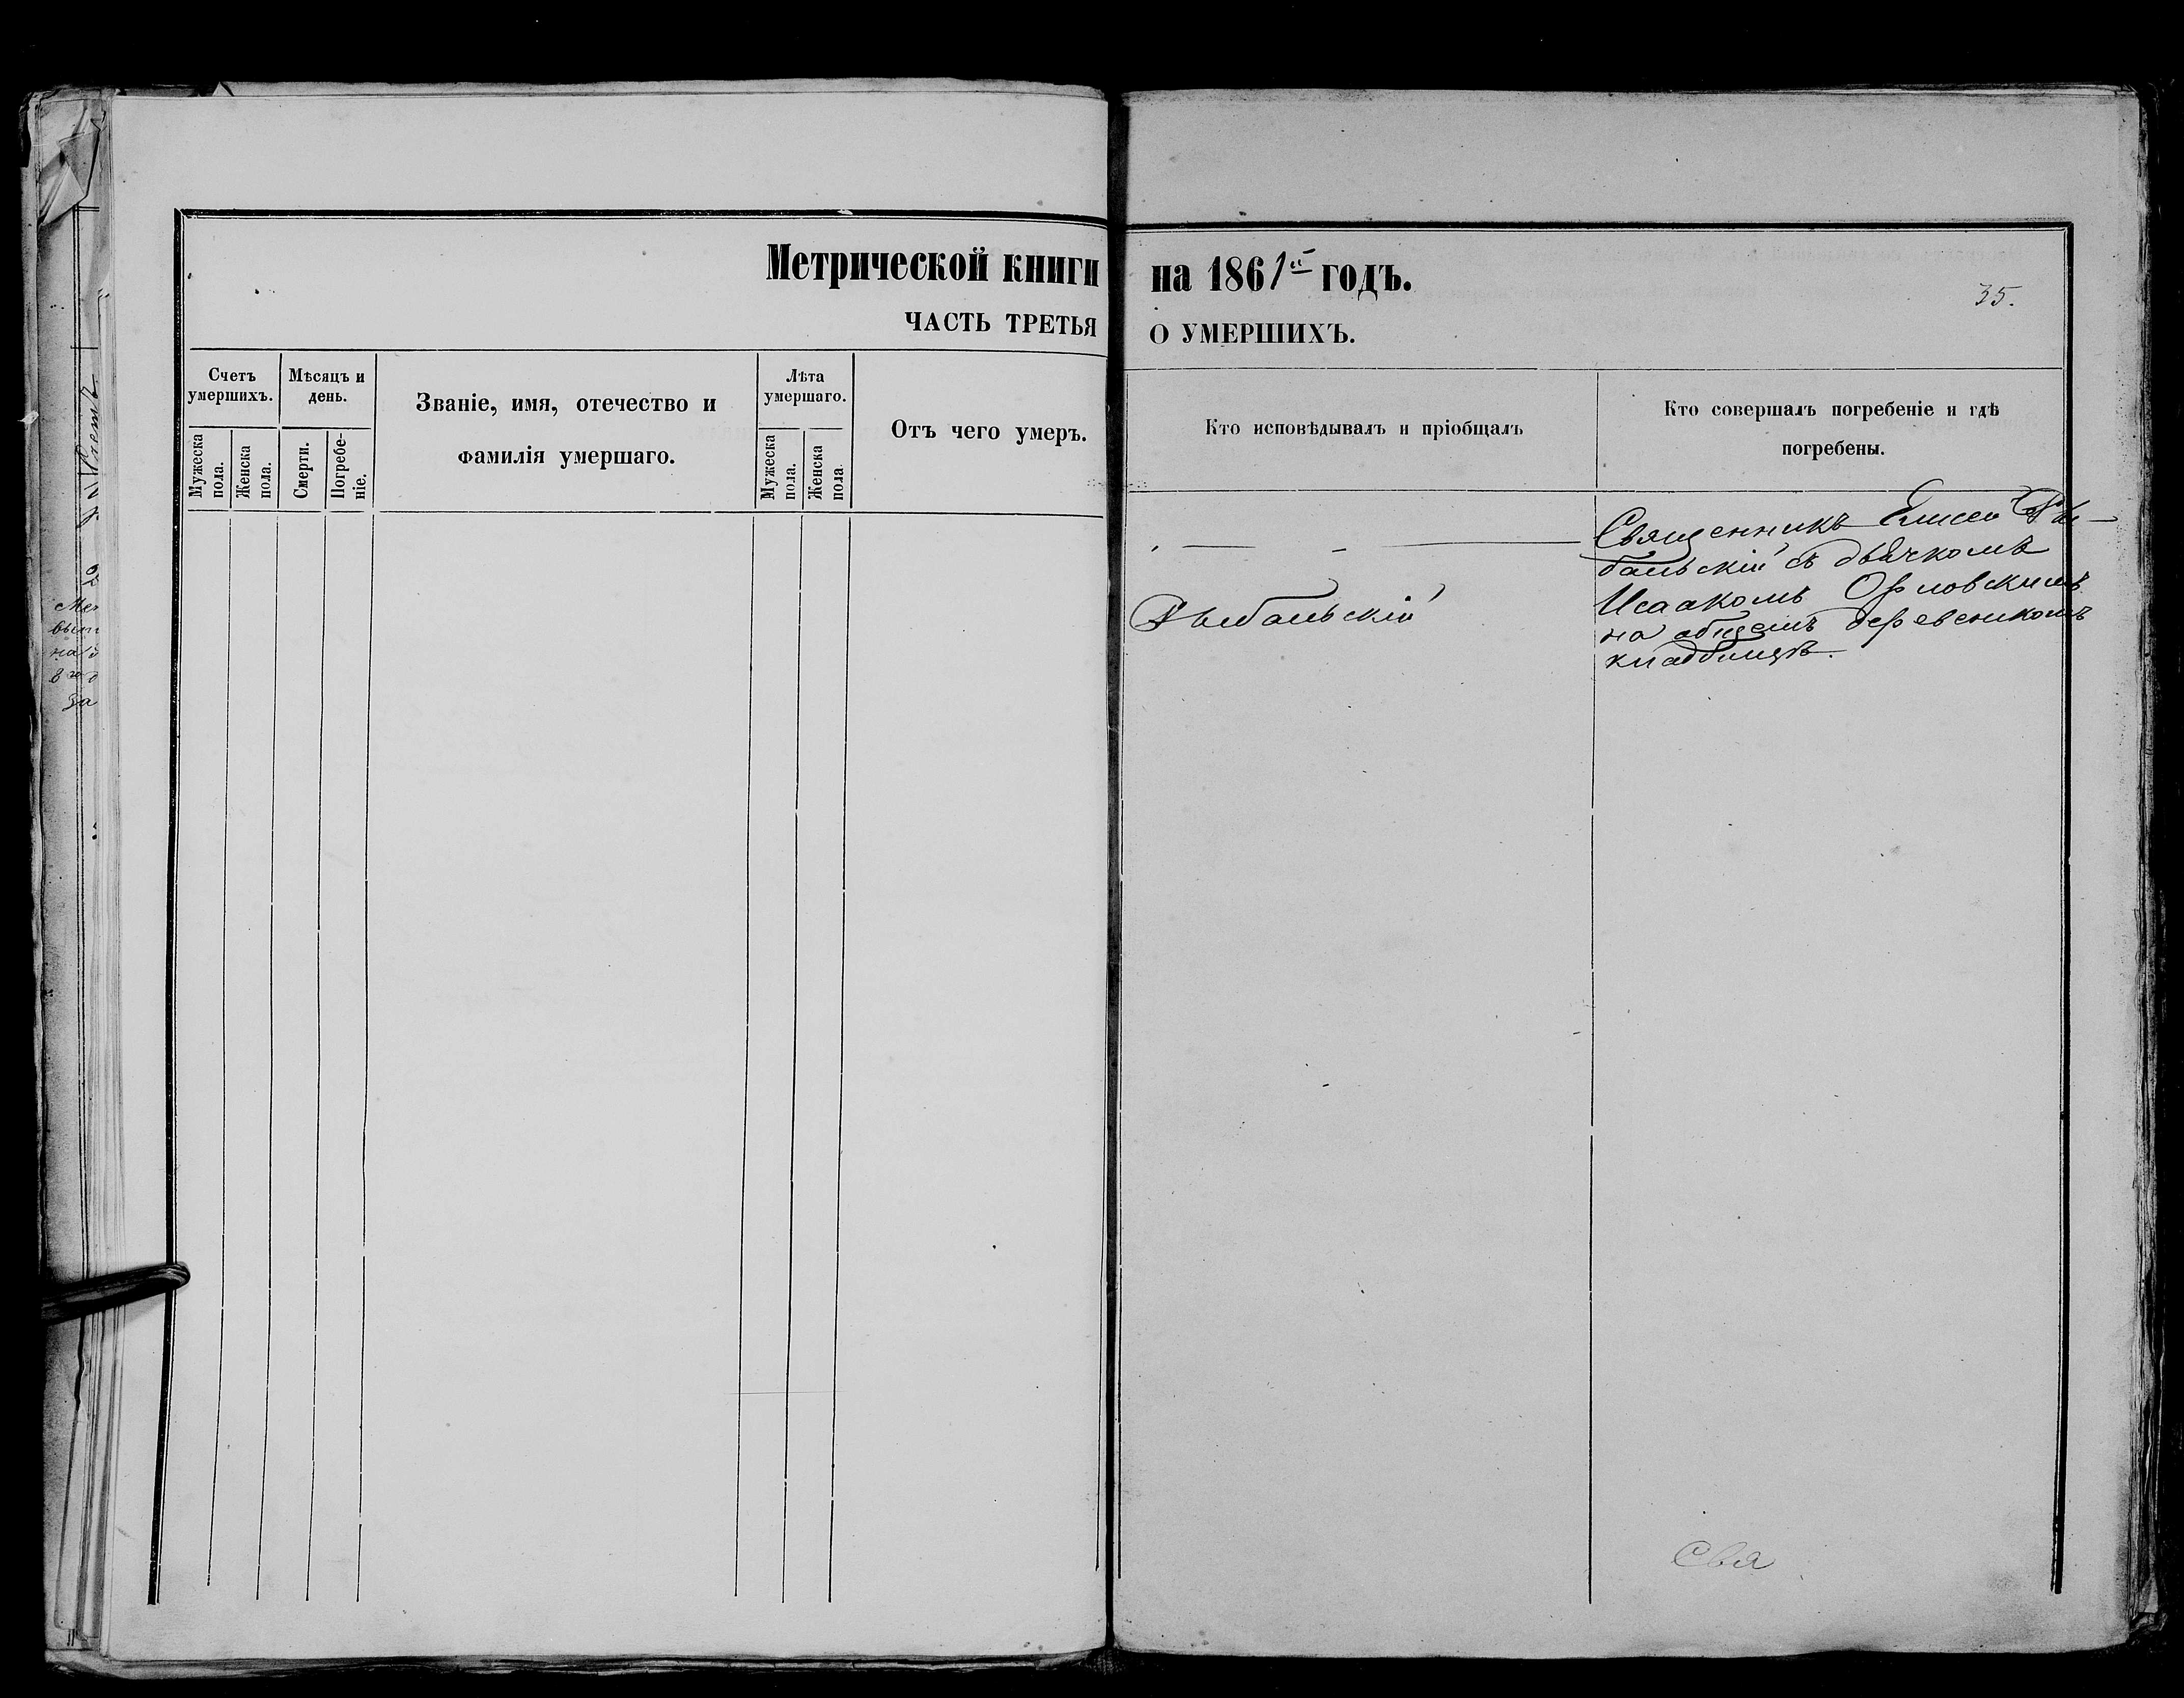 Метрической книги на 1861й годъ.
35.
ЧАСТЬ ТРЕТЬЯ О УМЕРШИХЪ.
Счетъ умершихъ.
Мужеска пола.
Женска пола.
Мѣсяцъ и день.
Смерти.
Погребе-
ніе.
Званіе, имя, отечество и
фамилія умершаго.
Лѣта умершаго.
Мужеска пола.
Женска пола.
Отъ чего умеръ.
Кто исповѣдывалъ и пріобщалъ
Кто совершалъ погребеніе и гдѣ
погребены.
Рыбальскій
Священникъ Елисей Ры-
бальскій съ дьячкомъ
Исаакомъ Орловскимъ
на общемъ деревенскомъ
кладбищѣ.
Свя